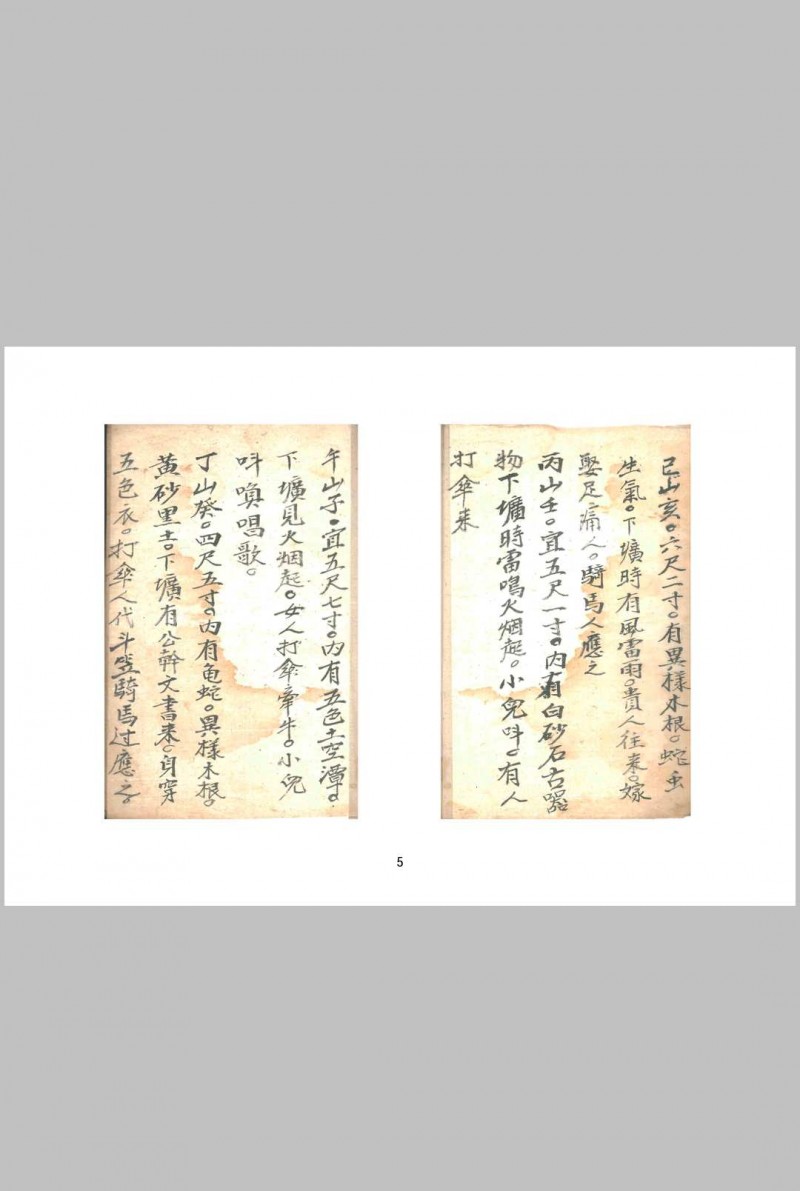 巳山亥。六尺二寸。有異樣木根。蛇虫
生氣。下壙時有風雷雨。貴人往来。嫁
娶足痛人。騎馬人應之
丙山壬。宜五尺一寸。内有白砂石古器
物下壙時雷鳴火烟起。小兒呌。有人
打傘来
午山子。宜五尺七寸。内有五色土空潭。
下壙見火烟起。女人打傘牽牛。小兒
呌喚唱歌。
丁山癸。四尺五寸。内有龟蛇。異樣木根。
黄砂黑土。下壙有公幹文書来。身穿
五色衣。打傘人代斗笠騎馬过應之。
5